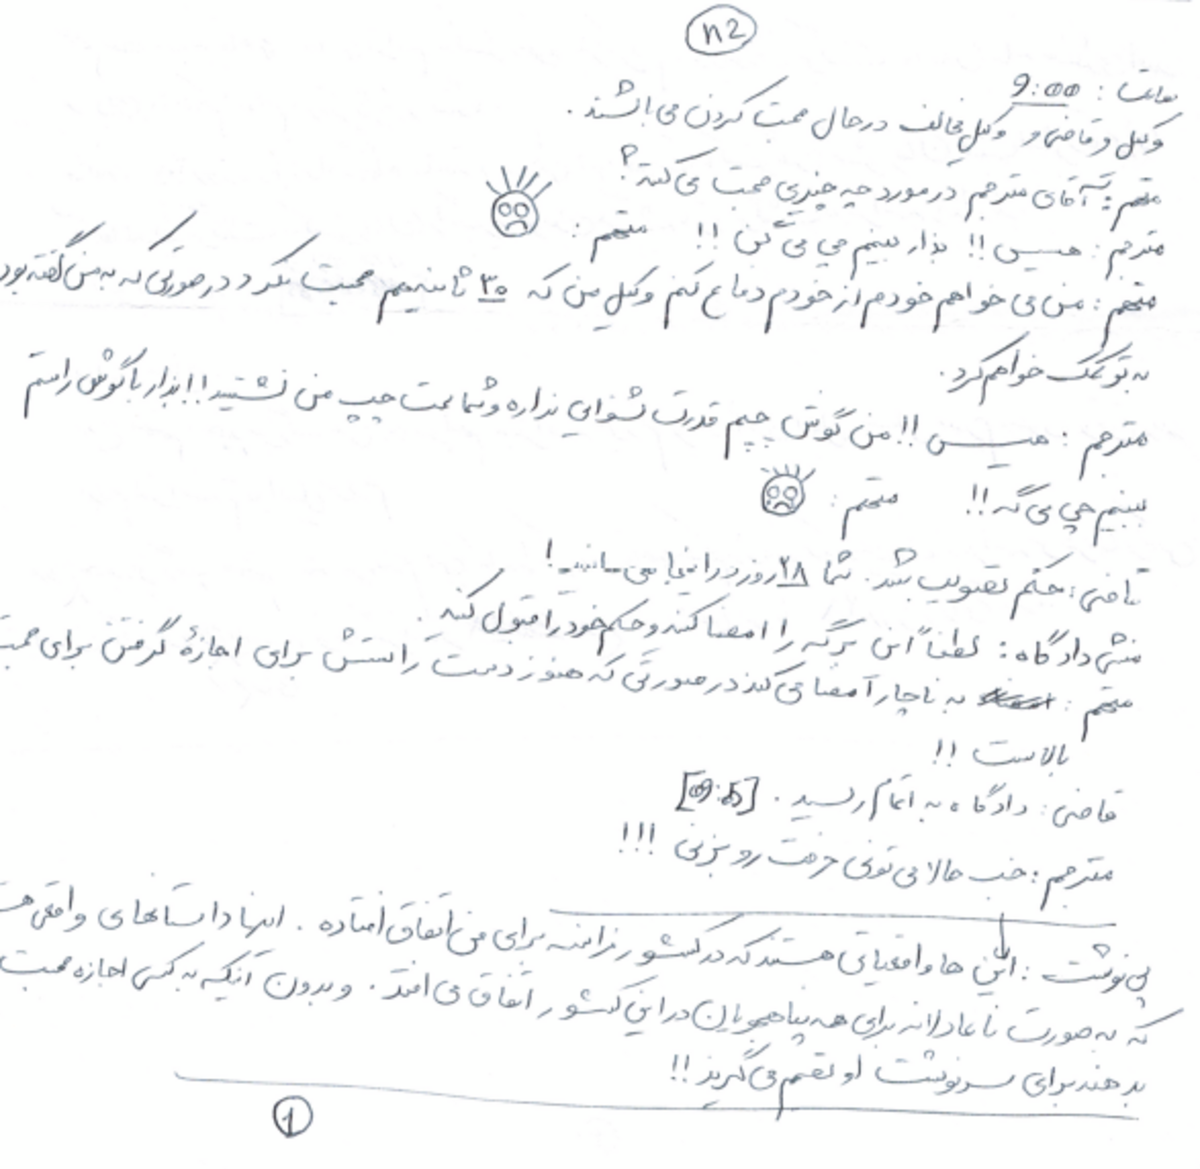 n2
ساعت : 9:00
وکیل و قاضی و وکیل مخالف در حال صحبت کردن می باشند .
متهم : آقای مترجم در مورد چه چیزی صحبت می کنه ؟
مترجم : هیس !! بذار ببینم چی می گن !! متهم :
متهم : من می خواهم خودم از خودم دفاع کنم وکیل من که ۳۰ ثانیه هم صحبت نکرد در صورتی که به من گفته بود
به تو کمک خواهم کرد .
مترجم : هیس !! من گوش چپم قدرت شنوایی نداره و شما سمت چپ من نشستید !! بذار با گوش راستم
ببینم چی می گه !! متهم :
قاضی : حکم تصویب شد . شما ۲۸ روز در اینجا می مانید !
منشی دادگاه : لطفاً این برگه را امضا کنید و حکم خود را قبول کنید
متهم : به ناچار امضا می کند در صورتی که هنوز دست راستش برای اجازهٔ گرفتن برای صحبت
بالاست !!
قاضی : دادگاه به اتمام رسید . [09:05]
مترجم : خب حالا می تونی حرفت رو بزنی !!!
پی نوشت : این ها واقعیاتی هستند که در کشور فرانسه برای من اتفاق افتاده . اینها داستانهای واقعی
که به صورت ناعادلانه برای همه پناهجویان در این کشور اتفاق می افتد . و بدون آنکه به کسی اجازه صحبت
بدهند برای سرنوشت او تصمیم می گیرند !!
1